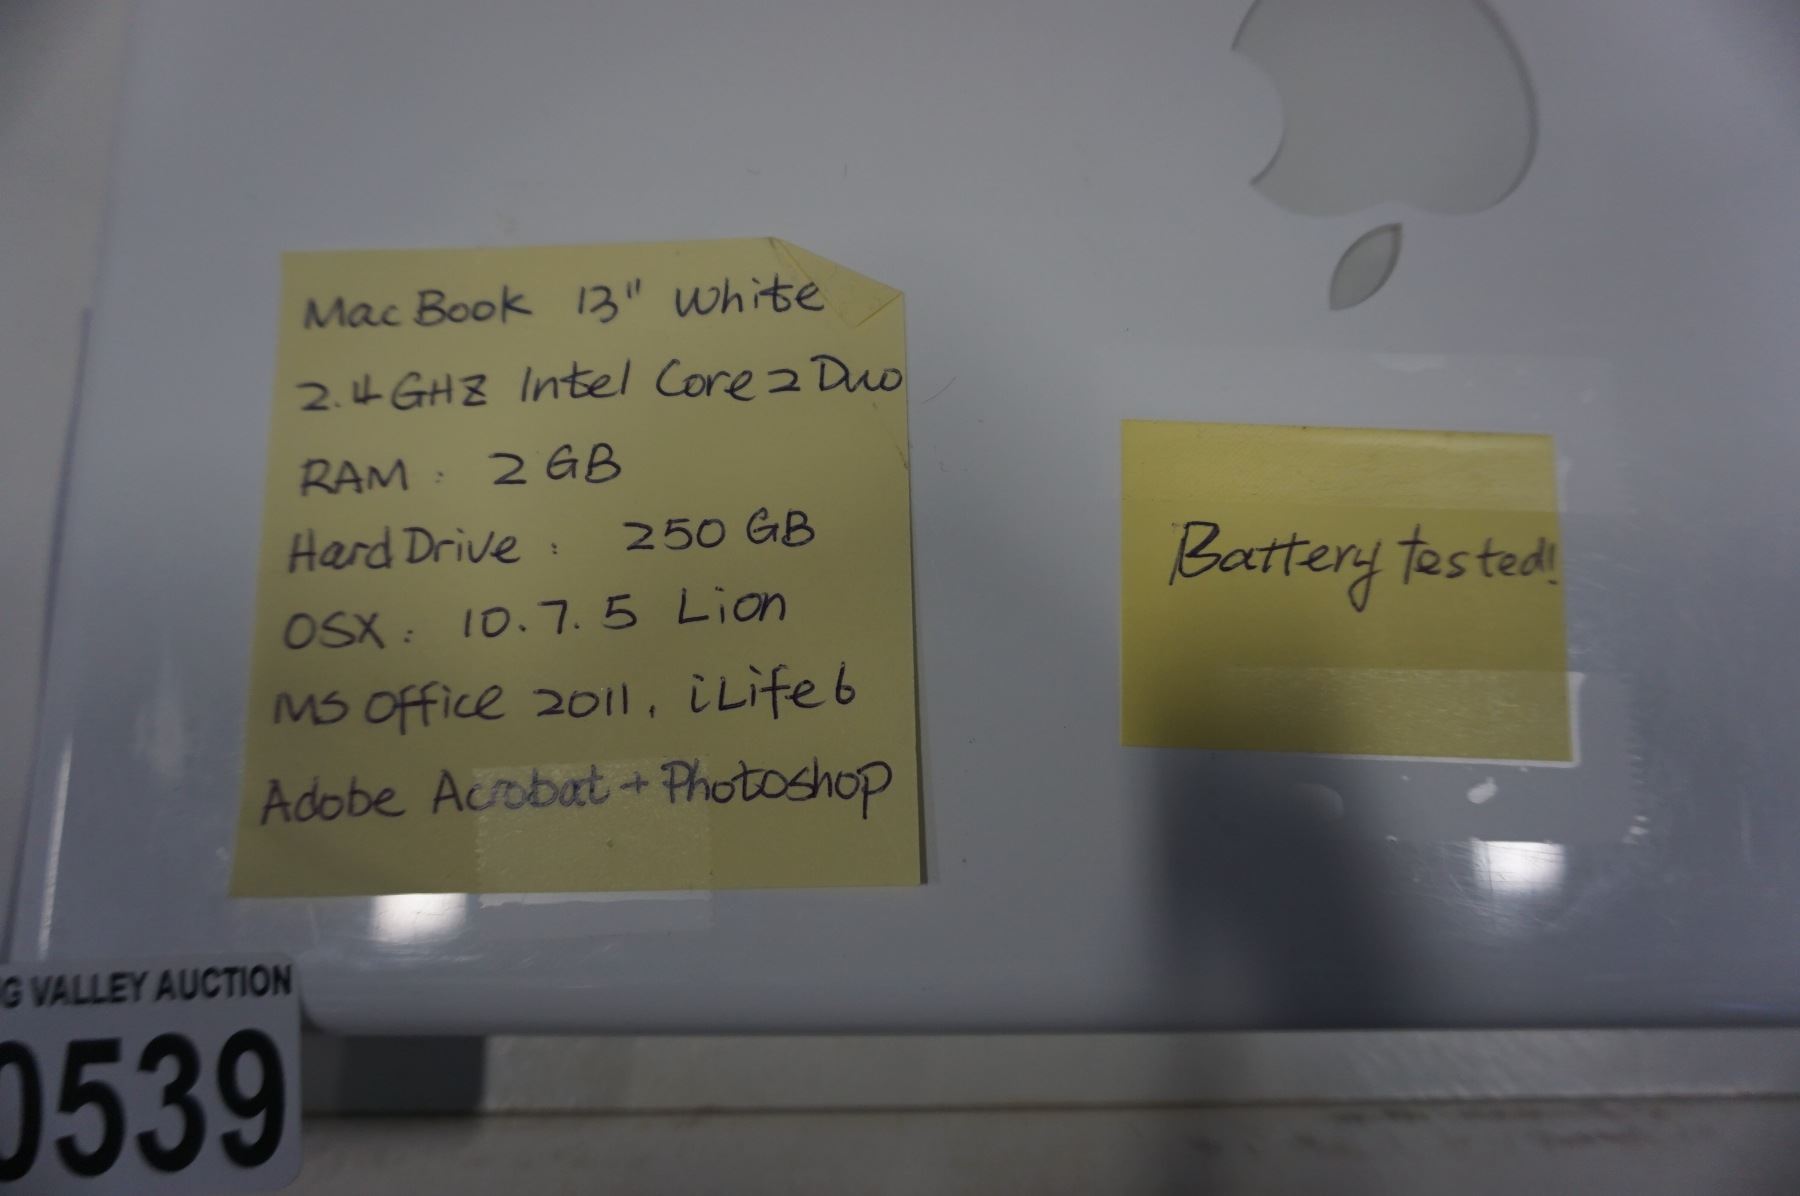 MacBook 13" White
2.4GHZ Intel Core 2 Duo
RAM: 2 GB
Hard Drive: 250 GB
OSX: 10.7.5 Lion
MS Office 2011, iLife 6
Adobe Acrobat + Photoshop
Battery tested!
G VALLEY AUCTION
0539